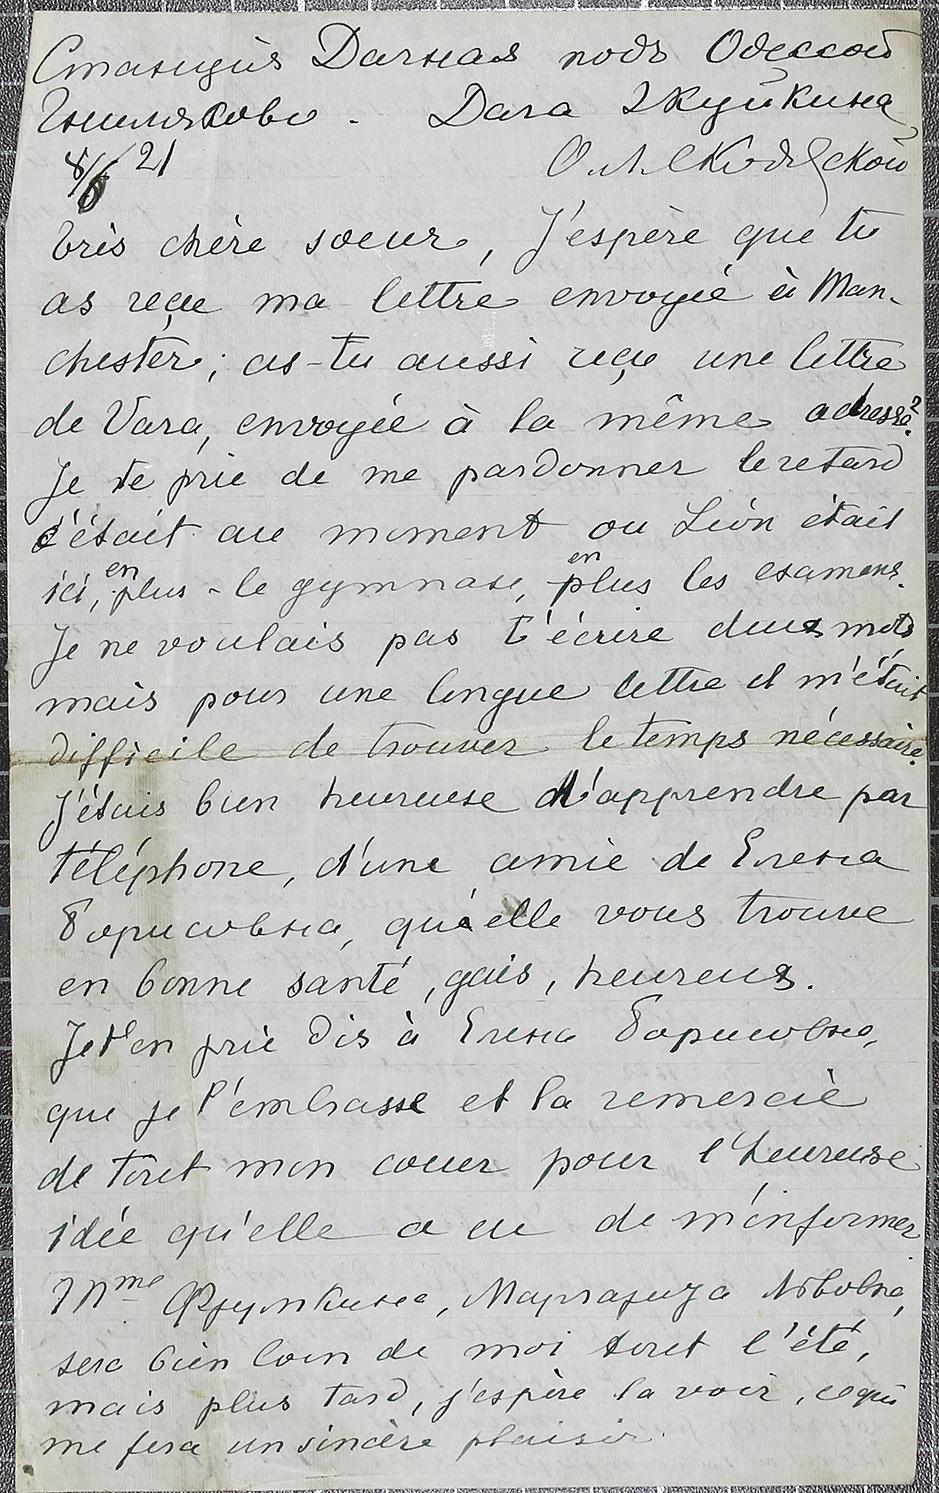 Станція Дачная подъ Одессой
Гниляково. Дача Якуйкина
8/6 21 О. Л.
Très chère soeur, J'espère que tu
as reçu ma lettre envoyée à Man-
chester; as-tu aussi reçu une lettre
de Vara, envoyée à la même adresse?
Je te prie de me pardonner le retard
c'était au moment ou Léon était
ici, en plus - le gymnase, en plus les examens.
Je ne voulais pas t'écrire deux mots
mais pour une longue lettre il m'était
difficile de trouver le temps nécessaire.
J'étais bien heureuse d'apprendre par
téléphone, d'une amie de Елена
Борисовна, qu'elle vous trouve
en bonne santé, gais, heureux.
Je t'en prie dis à Елена Борисовна,
que je l'embrasse et la remercie
de tout mon coeur pour l'heureuse
idée qu'elle a eu de m'informer
Mme Фрумкина, Маргарита Львовна,
sera bien loin de moi tout l'été,
mais plus tard, j'espère la voir, ce qui
me fera un sincère plaisir.